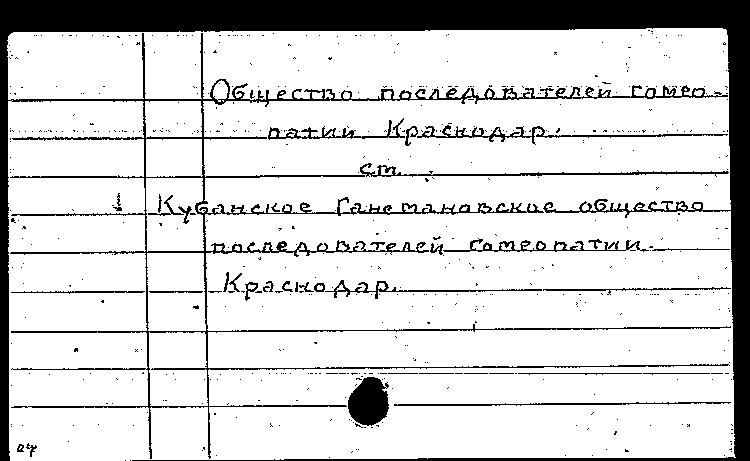 Общество последователей гомео-
патии. Краснодар.
см.
1 Кубанское Ганемановское общество
последователей гомеопатии.
Краснодар.